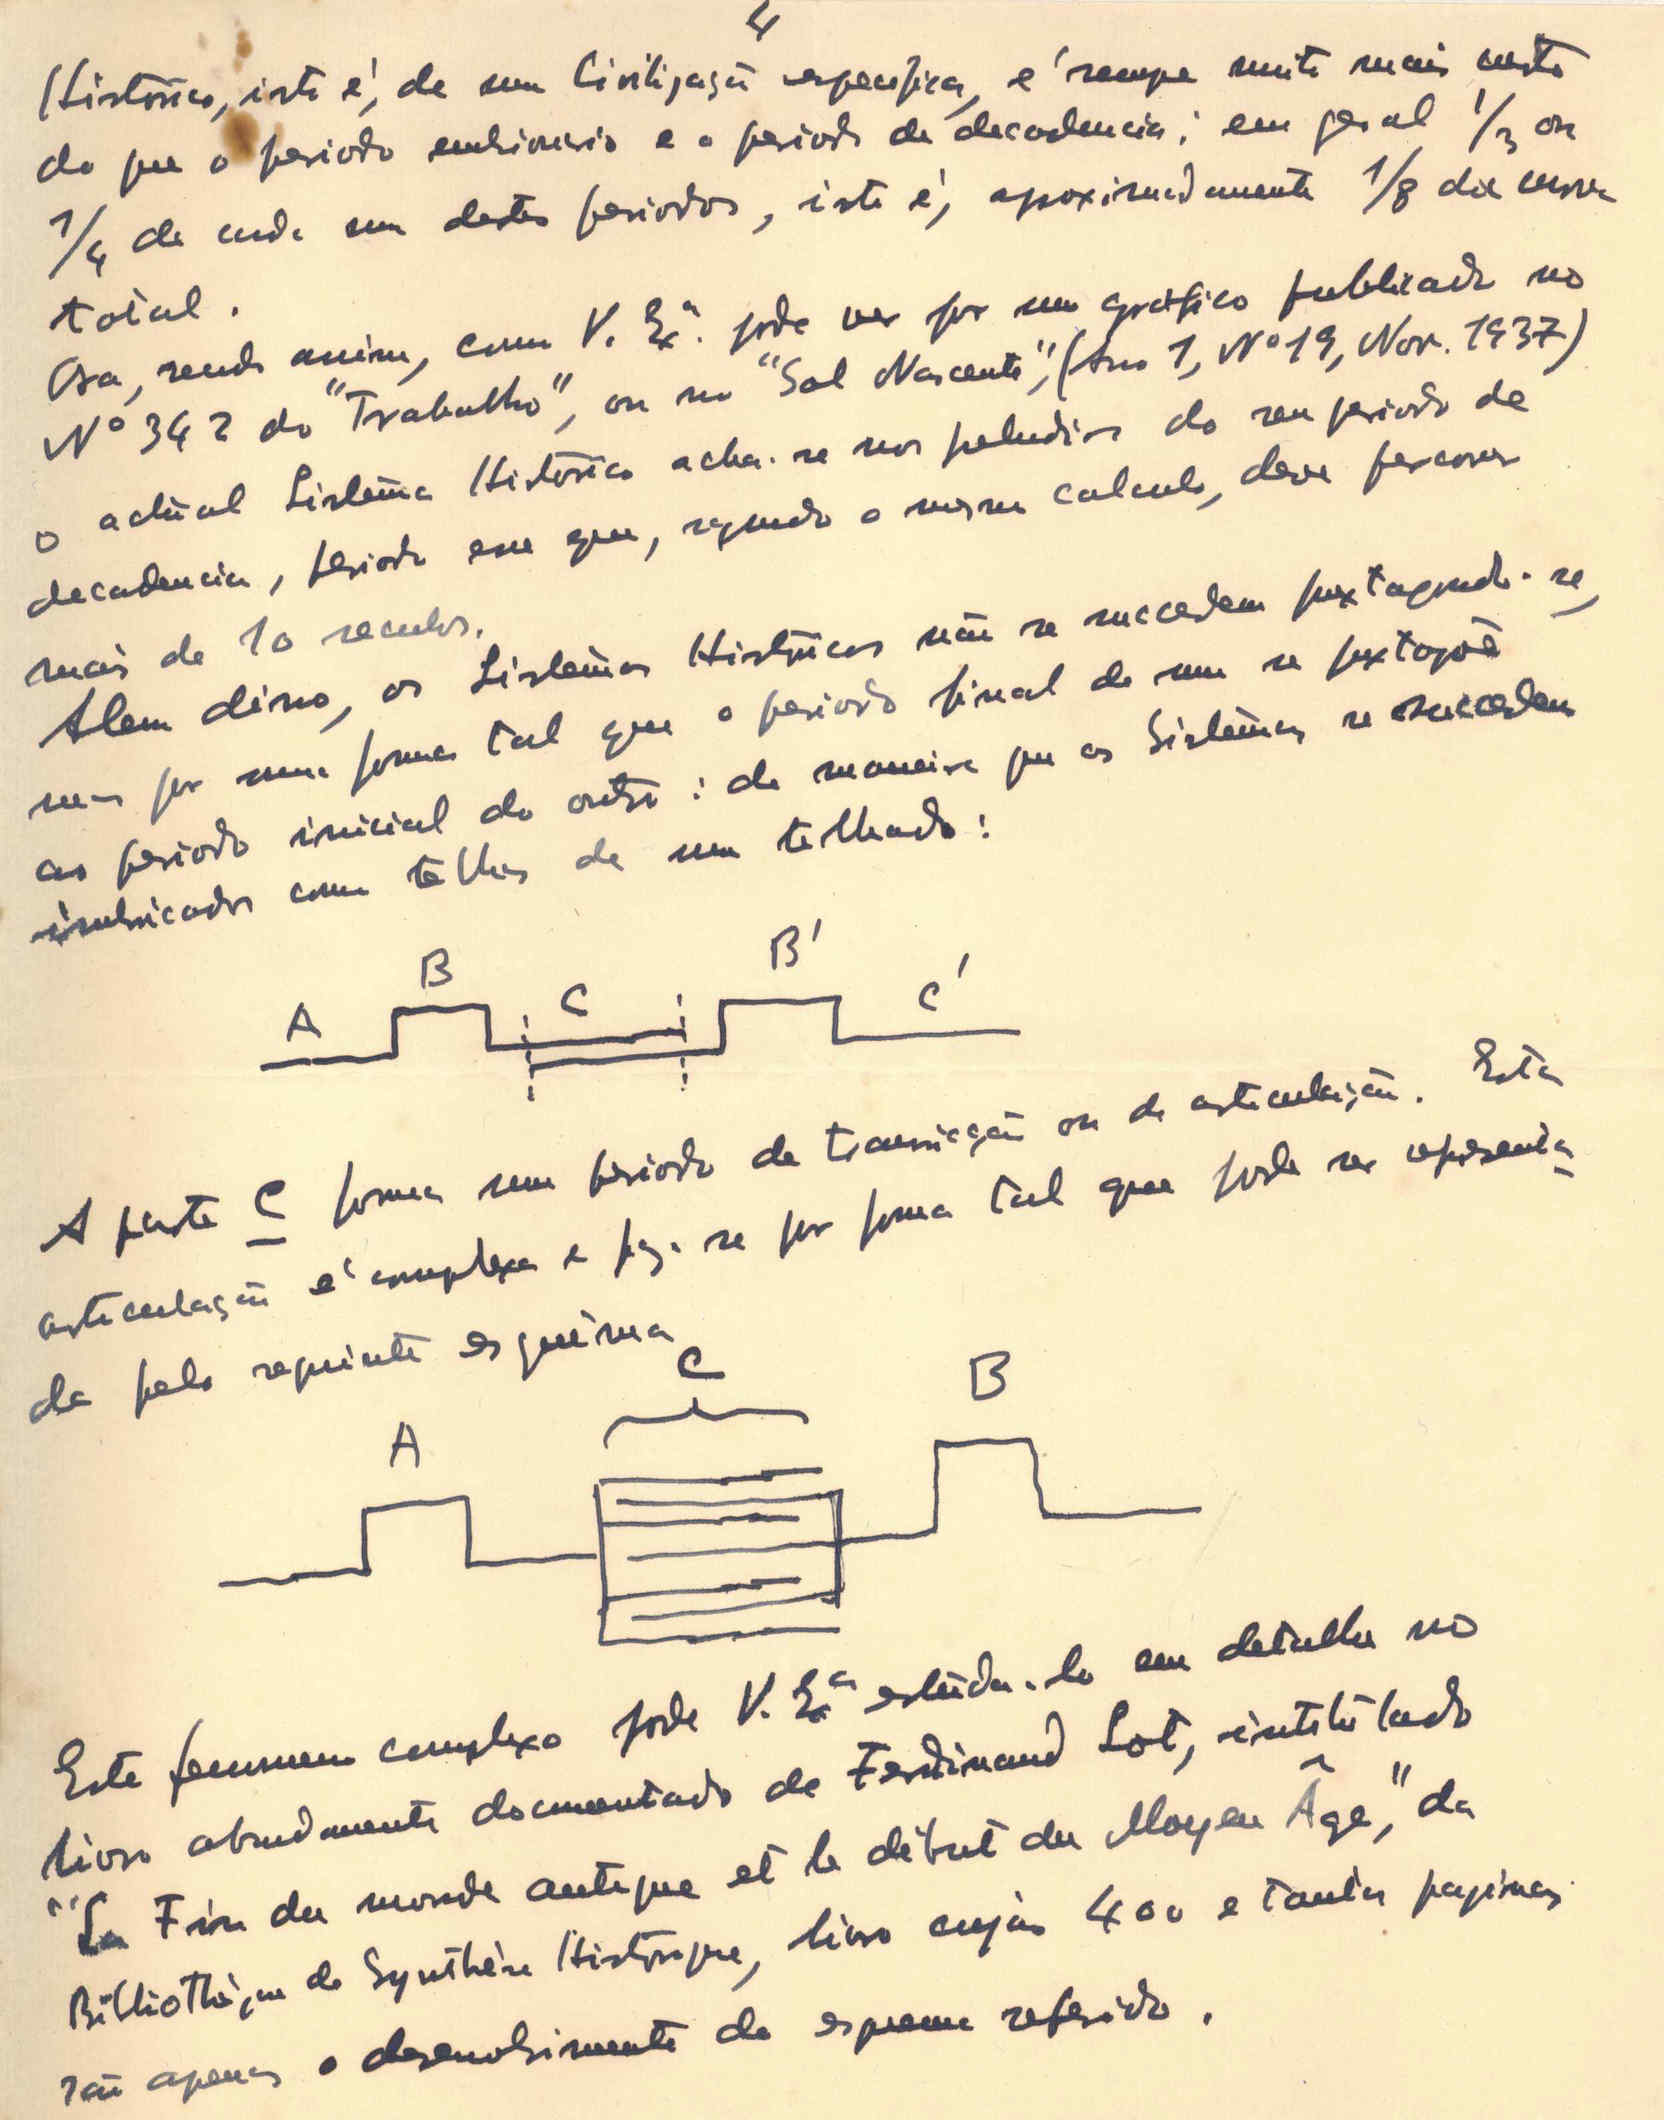 4
Histórico, isto é, de uma Civilização especifica, é sempre muito mais curto
do que o periodo embrionario e o periodo de decadencia; em geral 1/3 ou
1/4 de cada um destes periodos, isto é, aproximadamente 1/8 da curva
total.
Ora, sendo assim, como V. Exª. pode ver por um gráfico publicado no
Nº 342 do "Trabalho", ou no "Sol Nascente", (Ano 1, Nº 19, Nov. 1937)
o actual Sistêma Histórico acha-se nos preludios do seu periodo de
decadencia, periodo esse que, segundo o mesmo calculo, deve percorrer
mais de 10 seculos.
Alem disso, os Sistêmas Históricos não se succedem juxtapondo-se,
mas por uma forma tal que o periodo final de um se juxtapoe
ao periodo inicial do outro: de maneira que os Sistêmas se succedem
imbricados como telhas de um telhado:
A B C B' C'
A parte C forma um periodo de transicção ou de articulação. Esta
articulação é complexa e faz-se por forma tal que pode ser representa
da pelo seguinte esquêma
A C B
Este fenomeno complexo pode V. Exª estuda-lo em detalhe no
livro abundamente documentado de Ferdinand Lot, intitulado
"La Fin du monde antique et le début du Moyen Âge", da
Bibliothèque de Synthèse Historique, livro cujas 400 e tantas paginas
são apenas o desenvolvimento do esquema referido.